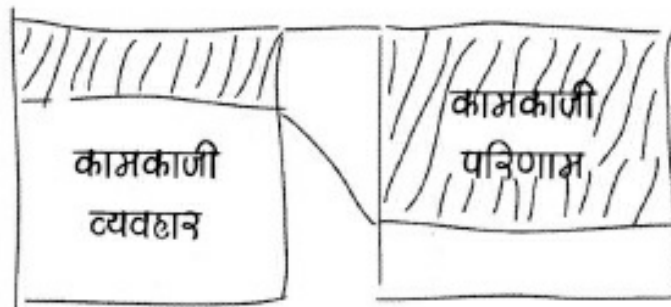 कामकाजी
व्यवहार
कामकाजी
परिणाम